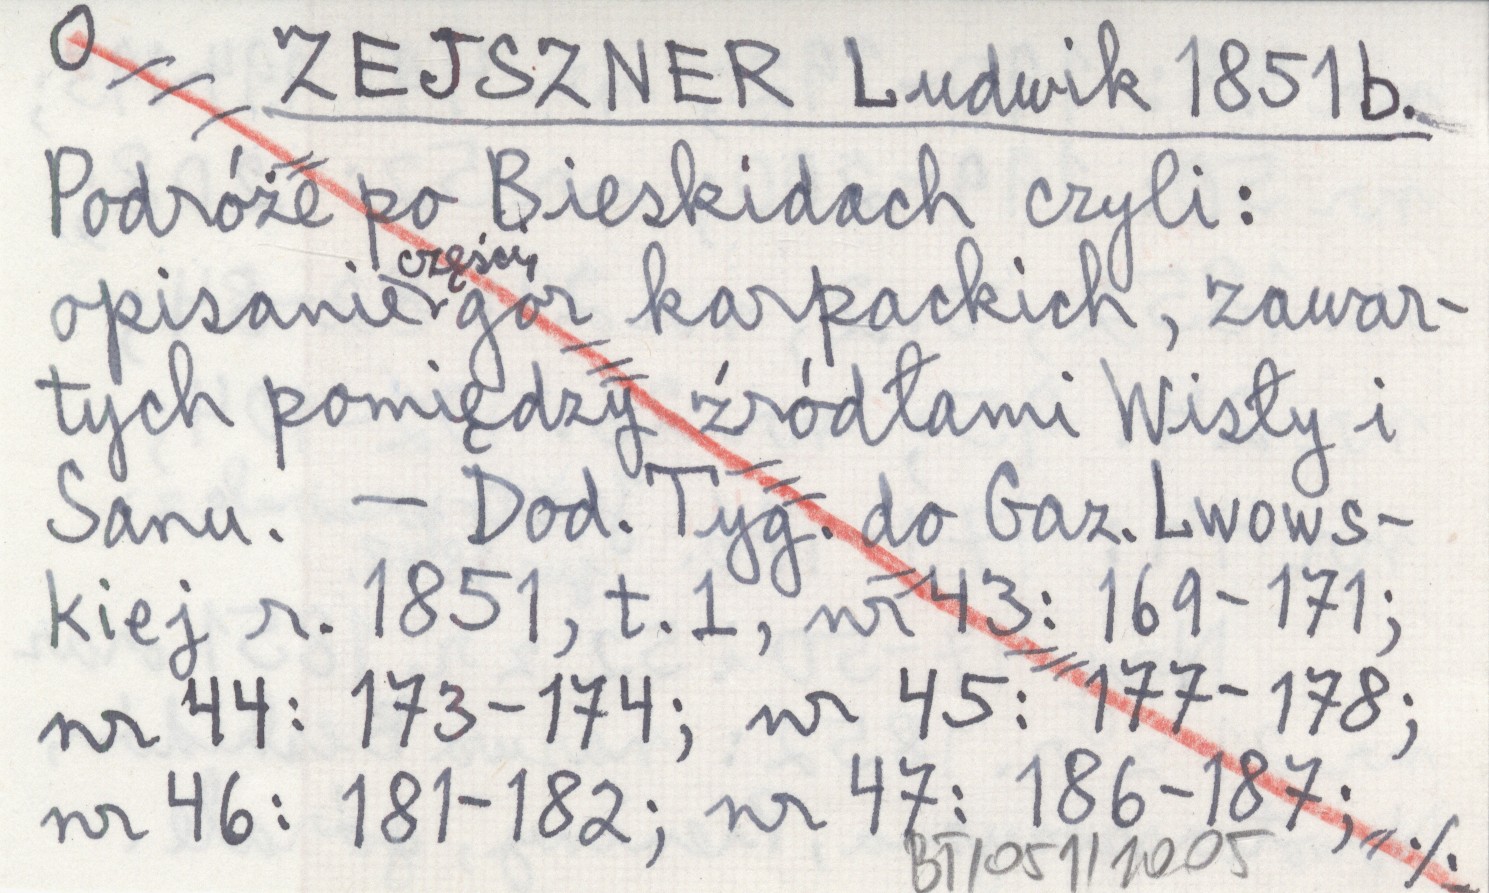 O ZEJSZNER Ludwik 1851b.
Podróże po Bieskidach czyli:
opisanie części gór karpackich, zawar-
tych pomiędzy źródłami Wisły i
Sanu. — Dod. Tyg. do Gaz. Lwows-
kiej r. 1851, t. 1, nr 43: 169-171;
nr 44: 173-174; nr 45: 177-178;
nr 46: 181-182; nr 47: 186-187; ./.
BT/051/1005